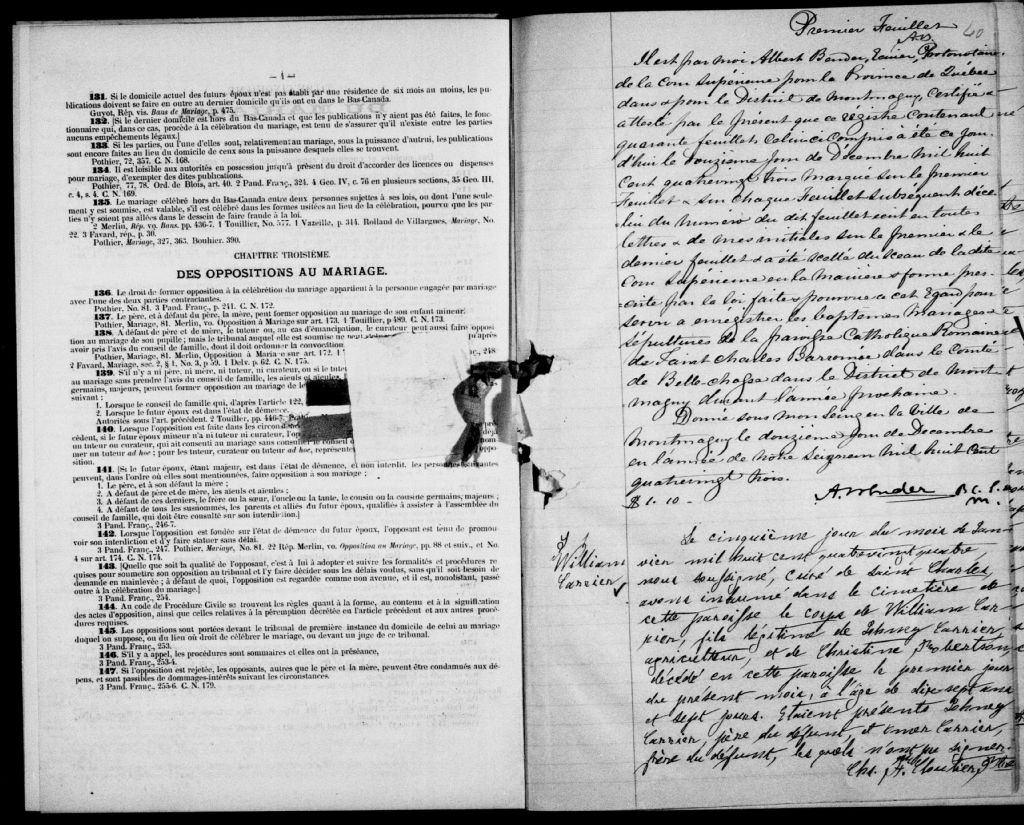 — 4 —
131. Si le domicile actuel des futurs époux n'est pas établi par une résidence de six mois au moins, les pu-
blications doivent se faire en outre au dernier domicile qu'ils ont eu dans le Bas-Canada.
Guyot, Rép. vis. Bans de Mariage, p. 475.
132. [Si le dernier domicile est hors du Bas-Canada et que les publications n'y aient pas été faites, le fonc-
tionnaire qui, dans ce cas, procède à la célébration du mariage, est tenu de s'assurer qu'il n'existe entre les parties
aucuns empêchements légaux.]
133. Si les parties, ou l'une d'elles sont, relativement au mariage, sous la puissance d'autrui, les publications
sont encore faites au lieu du domicile de ceux sous la puissance desquels elles se trouvent.
Pothier, 72, 357. C. N. 168.
134. Il est loisible aux autorités en possession jusqu'à présent du droit d'accorder des licences ou dispenses
pour mariage, d'exempter des dites publications.
Pothier, 77, 78. Ord. de Blois, art. 40. 2 Pand. Franç., 324. 4 Geo. IV, c. 76 en plusieurs sections, 35 Geo. III,
c. 4, s. 4. C. N. 169.
135. Le mariage célébré hors du Bas-Canada entre deux personnes sujettes à ses lois, ou dont l'une seule-
ment y est soumise, est valable, s'il est célébré dans les formes usitées au lieu de la célébration, pourvu que les par-
ties n'y soient pas allées dans le dessein de faire fraude à la loi.
2 Merlin, Rép. vo. Bans. pp. 436-7. 1 Touillier, No. 577. 1 Vazeille, p. 314. Rolland de Villargues, Mariage, No.
22. 3 Favard, rép., p. 30.
Pothier, Mariage, 327, 363. Bouhier. 390.
CHAPITRE TROISIÈME.
DES OPPOSITIONS AU MARIAGE.
136. Le droit de former opposition à la célébration du mariage appartient à la personne engagée par mariage
avec l'une des deux parties contractantes.
Pothier, No. 81. 3 Pand. Franç., p. 241. C. N. 172.
137. Le père, et à défaut du père, la mère, peut former opposition au mariage de son enfant mineur.
Pothier, Mariage, 81. Merlin, vo. Opposition à Mariage sur art. 173. 1 Touillier, p 489. C. N. 173.
138. A défaut de père et de mère, le tuteur ou, au cas d'émancipation, le curateur peut aussi faire opposi
tion au mariage de son pupille; mais le tribunal auquel elle est soumise ne peut
avoir pris l'avis du conseil de famille, dont il doit ordonner la convocation
Pothier, Mariage, 81. Merlin, Opposition à Mariage sur art. 172. 1 , 248
2 Favard, Mariage, sec. 2, § 1, No. 3, p 59. 1 Delv. p. 62. C. N. 175.
139. S'il n'y a ni père, ni mère, ni tuteur, ni curateur, ou si le tuteur
au mariage sans prendre l'avis du conseil de famille, les aïeuls et aïeules
germains, majeurs, peuvent former opposition au mariage de le
suivant :
1. Lorsque le conseil de famille qui, d'après l'article 122,
2. Lorsque le futur époux est dans l'état de démence.
Autorités sous l'art. précédent. 2 Touiller, pp. 446-7.
140. Lorsque l'opposition est faite dans les circons
cédent, si le futur époux mineur n'a ni tuteur ni curateur, l'op
un tuteur ou curateur, qui ait consenti au mariage sans consulter le conseil d
mer un tuteur ad hoc; pour les tuteur, curateur ou tuteur ad hoc, représente
sition.
141. [Si le futur époux, étant majeur, est dans l'état de démence, et non interdit, les personnes suivantes
peuvent, dans l'ordre où elles sont mentionnées, faire opposition à son mariage :
1. Le père, et à son défaut la mère;
2. A défaut de père et de mère, les aïeuls et aïeules;
3. A défaut de ces derniers, le frère ou la sœur, l'oncle ou la tante, le cousin ou la cousine germains, majeurs;
4. A défaut de tous les susnommés, les parents et alliés du futur époux, qualifiés à assister à l'assemblée du
conseil de famille, qui doit être consulté sur son interdiction.]
3 Pand. Franç., 246-7.
142. Lorsque l'opposition est fondée sur l'état de démence du futur époux, l'opposant est tenu de promou-
voir son interdiction et d'y faire statuer sans délai.
3 Pand. Franç., 247. Pothier, Mariage, No. 81. 22 Rép. Merlin, vo. Opposition au Mariage, pp. 88 et suiv., et No.
4 sur art. 174. C. N. 174.
143. [Quelle que soit la qualité de l'opposant, c'est à lui à adopter et suivre les formalités et procédures re-
quises pour soumettre son opposition au tribunal et l'y faire décider sous les délais voulus, sans qu'il soit besoin de
demande en mainlevée; à défaut de quoi, l'opposition est regardée comme non avenue, et il est, nonobstant, passé
outre à la célébration du mariage.]
3 Pand. Franç., 254.
144. Au code de Procédure Civile se trouvent les règles quant à la forme, au contenu et à la signification
des actes d'opposition, ainsi que celles relatives à la péremption décrétée en l'article précédent et aux autres procé-
dures requises.
145. Les oppositions sont portées devant le tribunal de première instance du domicile de celui au mariage
duquel on suppose, ou du lieu où droit de célébrer le mariage, ou devant un juge de ce tribunal.
3 Pand. Franç., 253.
146. S'il y a appel, les procédures sont sommaires et elles ont la préséance,
3 Pand. Franç., 253-4.
147. Si l'opposition est rejetée, les opposants, autres que le père et la mère, peuvent être condamnés aux dé-
pens, et sont passibles de dommages-intérêts suivant les circonstances.
3 Pand. Franç., 255-6. C. N. 179.
Premier Feuillet 40
Il est par moi Albert Bender, Ecuier, Protonotaire
de la Cour Supérieure pour la Province de Québec
dans & pour le District de Montmagny, Certifié &
attesté par le présent que ce registre contenant
quarante feuillets celui-ci compris a été ce jour
d'hui le Douzième jour de Décembre Mil huit
Cent quatrevingt trois Marqué sur le premier
Feuillet & sur chaque Feuillet subséquent dice-
lui du Numéro du dit feuillet écrit en toutes
lettres & de mes initiales sur le premier & le
dernier feuillet & a été scellé du sceau de la dite
Cour Supérieure en la Manière & forme pres-
crite par la loi faite & pourvue a cet Egard pour
servir a enregistrer les baptêmes Mariages &
sépultures de la paroisse Catholique Romaine
de Saint Charles Borromée dans le Comté
de Bellechasse dans le District de Mont-
magny durant l'année prochaine.
Donné sous mon Seing en la Ville de
Montmagny le douzième jour de Décembre
en l'année de Notre Seigneur Mil huit Cent
quatrevingt trois.
$1-10- A Bender P. C. S.
M.
S William
Carrier,
Le cinquième jour du mois de Jan-
vier mil huit cent quatrevingt quatre,
nous soussigné, Curé de saint Charles,
avons inhumé dans le cimetière de
cette paroisse le corps de William Car-
rier, fils légitime de Johney Carrier,
agriculteur, et de Christine Robertson,
décédé en cette paroisse le premier jour
du présent mois, à l'âge de dix sept ans
et sept jours. Etaient présents Johney
Carrier, père du défunt et Omer Carrier,
frère du défunt, lesquels n'ont pu signer.
Chs. A. Cloutier, Ptre